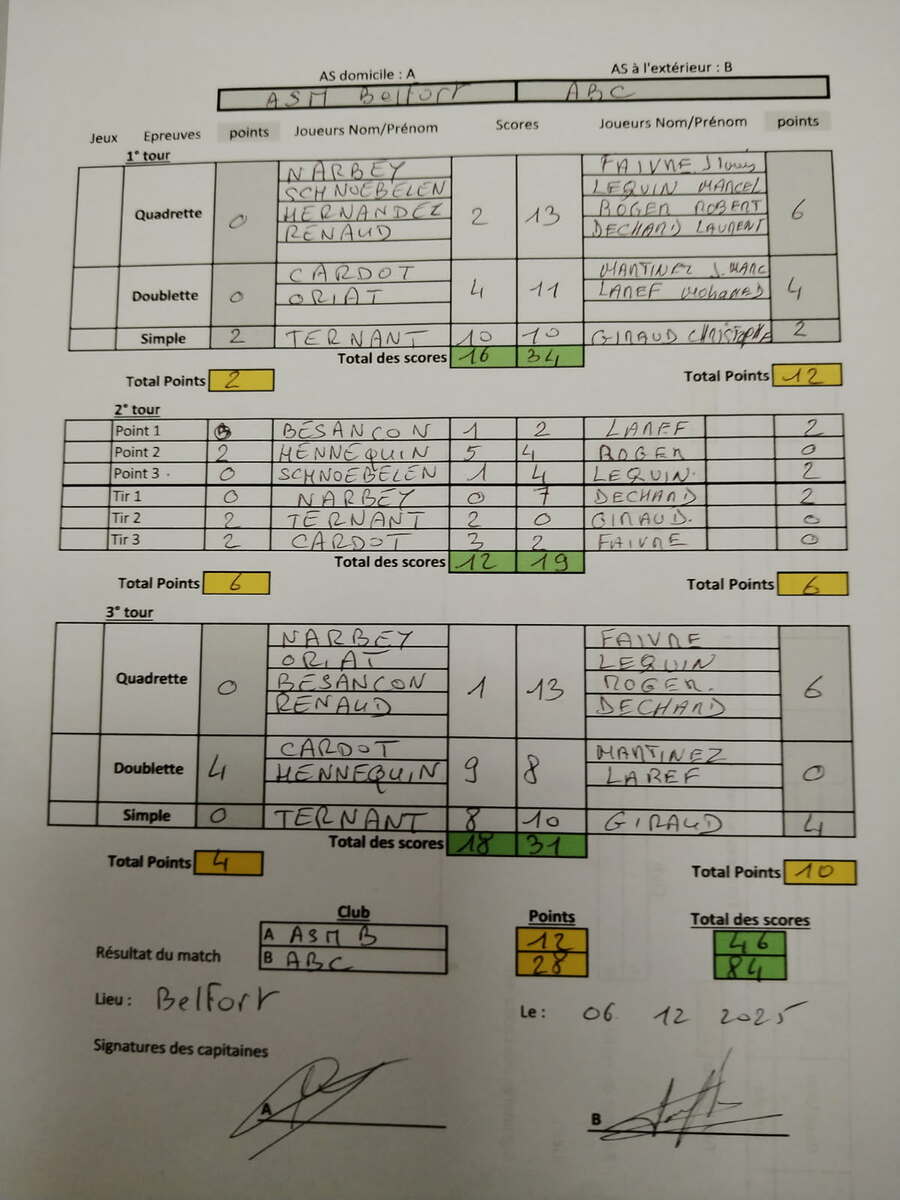 AS domicile : A AS à l'extérieur : B
ASM Belfort ABC
Jeux Epreuves points Joueurs Nom/Prénom Scores Joueurs Nom/Prénom points
1° tour
Quadrette 0 NARBEY SCHNOEBELEN HERNANDEZ RENAUD 2 13 FAIVRE LEQUIN MARCEL ROGER ROBERT DECHARD LAURENT 6
Doublette 0 CARDOT ORIAT 4 11 MARTINEZ J. MARC LAREF MOHAMED 4
Simple 2 TERNANT 10 10 GIRAUD CHRISTOPHE 2
Total des scores 16 34
Total Points 2 Total Points 12
2° tour
Point 1 BESANCON 1 2 LAREF 2
Point 2 2 HENNEQUIN 5 4 ROGER 0
Point 3 0 SCHNOEBELEN 1 4 LEQUIN. 2
Tir 1 0 NARBEY 0 7 DECHARD 2
Tir 2 2 TERNANT 2 0 GIRAUD. 0
Tir 3 2 CARDOT 3 2 FAIVRE 0
Total des scores 12 19
Total Points 6 Total Points 6
3° tour
Quadrette 0 NARBEY ORIAT BESANCON RENAUD 1 13 FAIVRE LEQUIN ROGER. DECHARD 6
Doublette 4 CARDOT HENNEQUIN 9 8 MARTINEZ LAREF 0
Simple 0 TERNANT 8 10 GIRAUD 4
Total des scores 18 31
Total Points 4 Total Points 10
Club Points Total des scores
Résultat du match
A ASM B 12 46
B ABC 28 84
Lieu : Belfort Le : 06 12 2025
Signatures des capitaines
A B